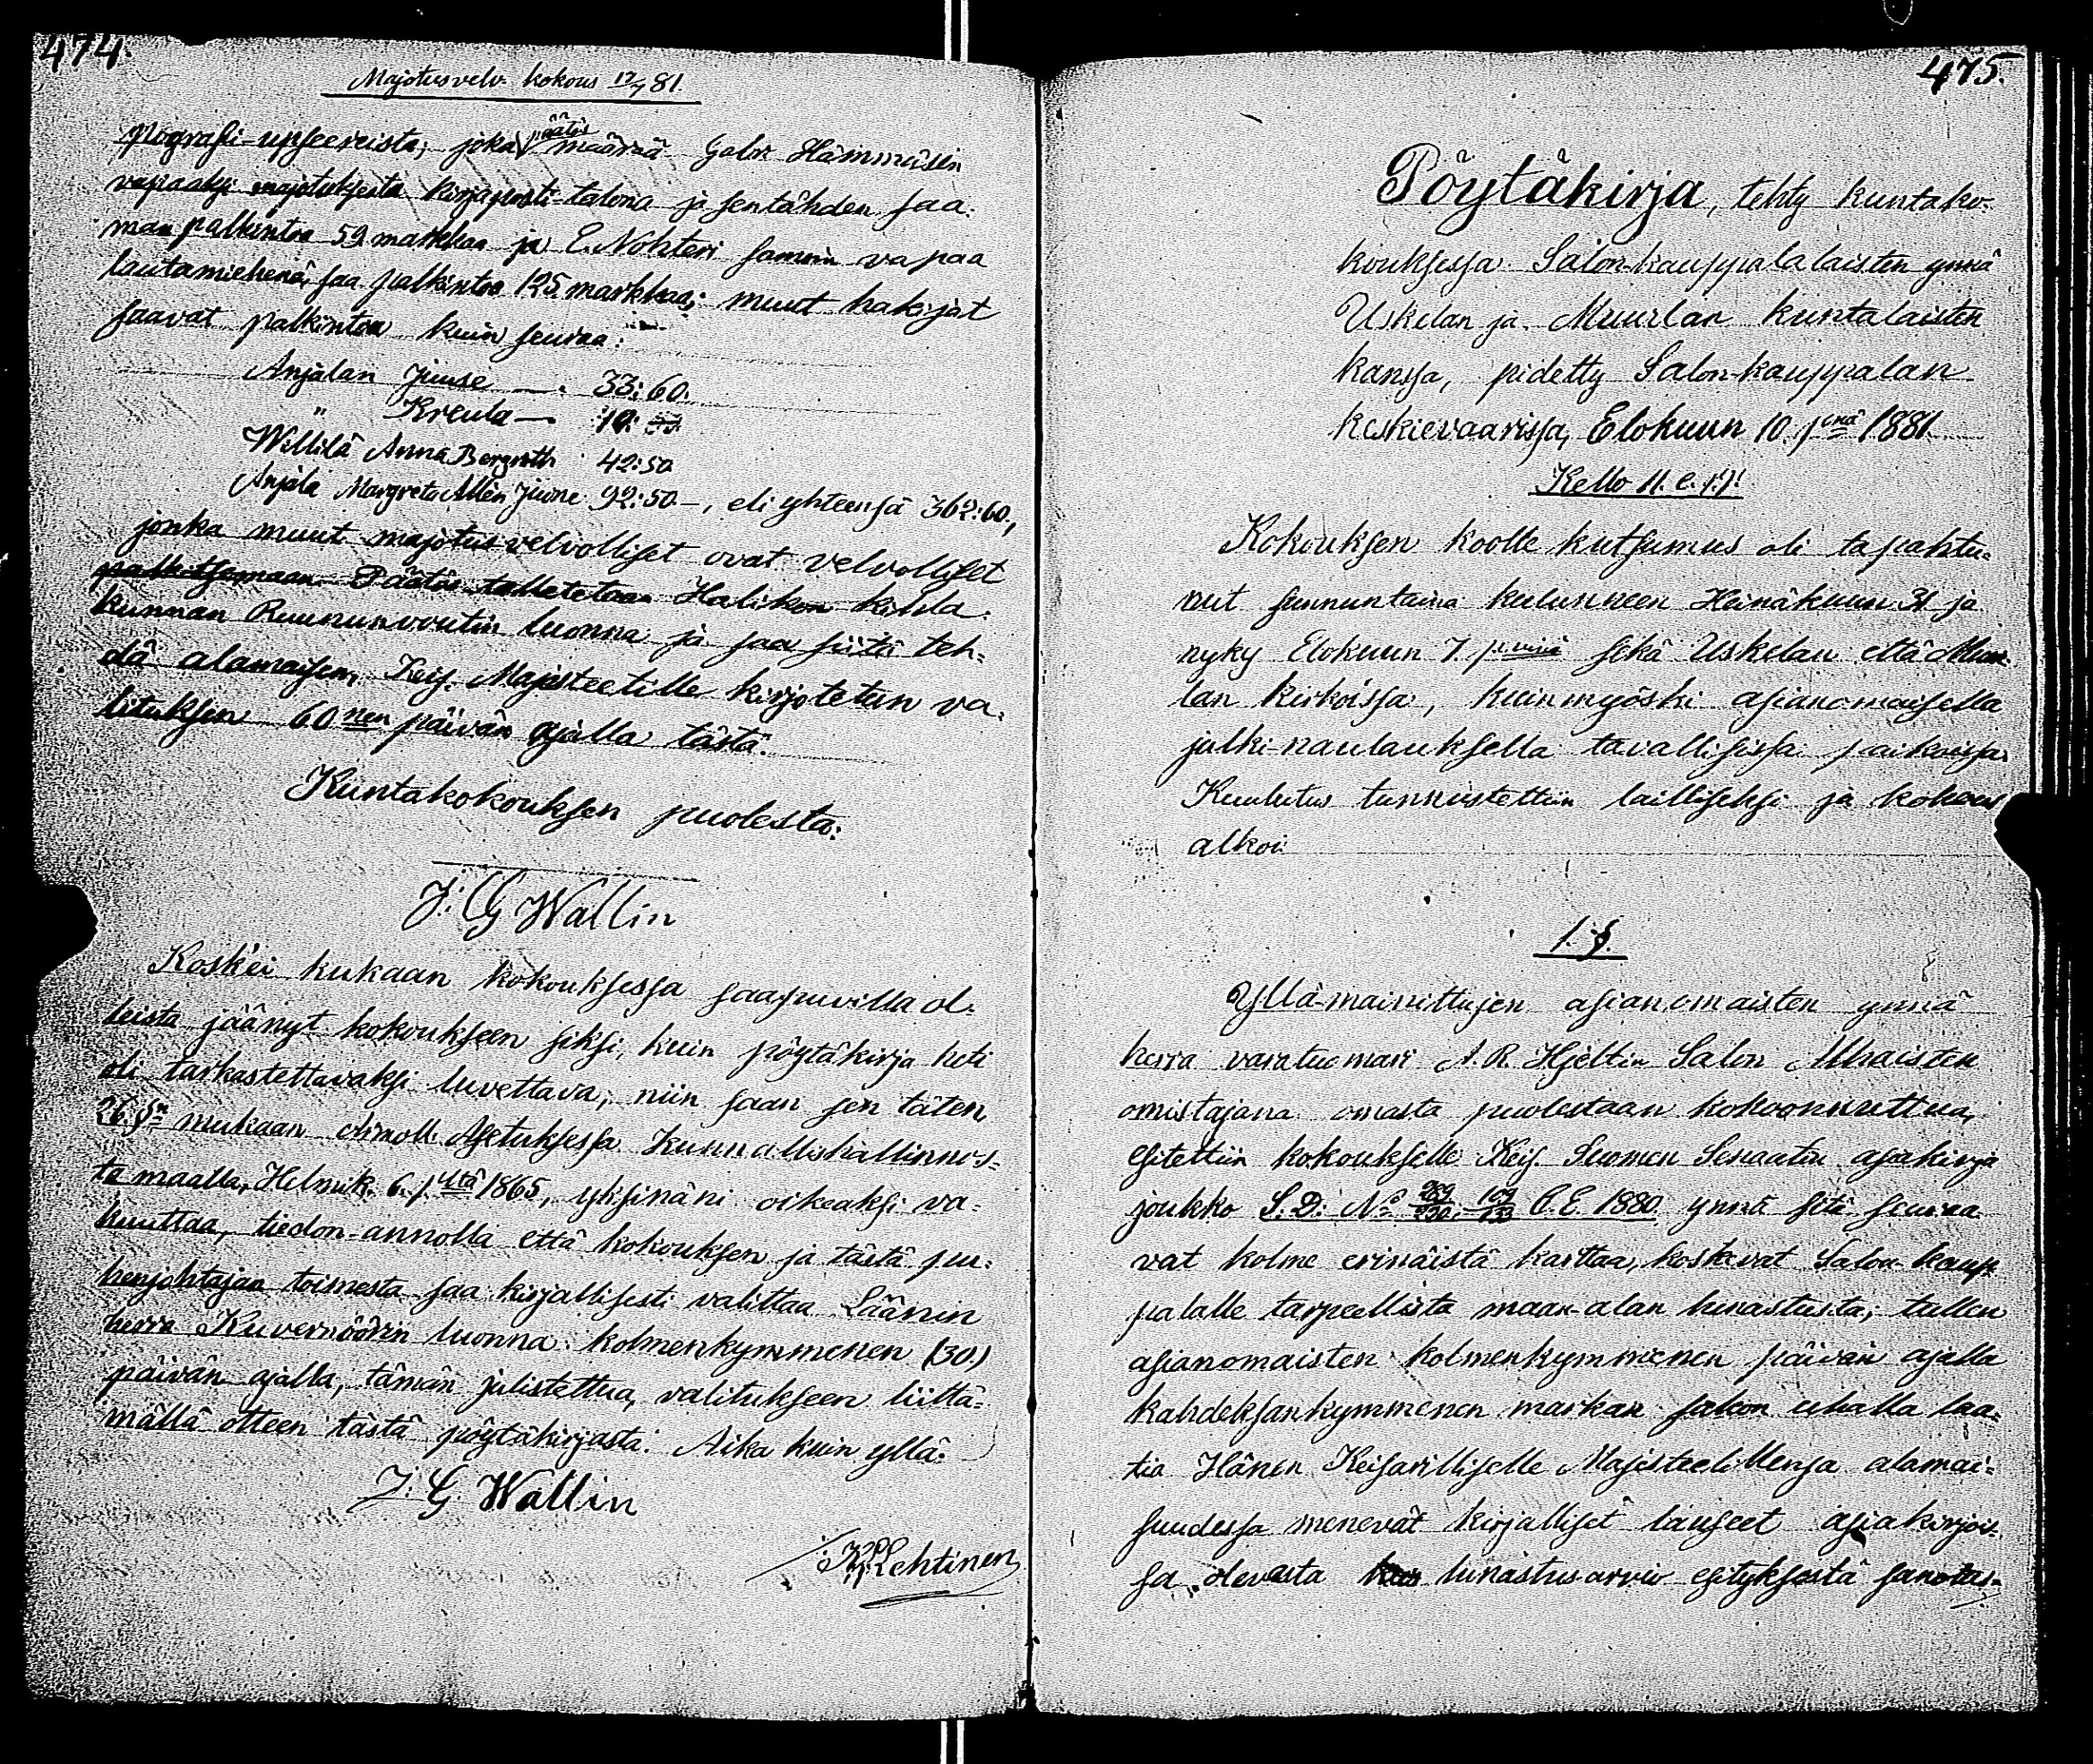 474.
Majotusvelv. kokous 17/7 81.
pografi-upseereista; joka päätis määrää Galor Hämmäisen
vapaaksi majotuksesta kirjaposti-talona ja sentähden saa-
man palkintoa 59 markkaa ja E. Nohteri samoin vapaa
lautamiehenä, saa palkintoa 125 markkaa; muut hakijat
saavat palkintoa kuin seuraa:
Anjalan Juuse — 33:60.
" Kreula — 10:
Willilä Anna Bergroth 42:50
Anjala Margreta Allén Juone 92:50 —, eli yhteensä 362:60,
jonka muut majotusvelvolliset ovat velvolliset
palkitsemaan. Päätös talletetaan Halikon kihla-
kunnan Ruununvoutin luonna ja saa siitä teh-
dä alamaisen, Keis. Majesteetille kirjotetun va-
lituksen 60 nen päivän ajalla tästä.
Kuntakokouksen puolesta:
J: G Wallin
Kosk'ei kukaan kokouksessa saapuvilla ol-
leista jäänyt kokoukseen siksi, kuin pöytäkirja heti
oli tarkastettavaksi luvettava, niin saan sen täten
26. §n mukaan Armoll. Asetuksessa Kunnallishallinnos-
ta maalla, Helmik. 6. p. ltä 1865, yksinäni oikeaksi va-
kuuttaa, tiedon-annolla että kokouksen ja tästä pu-
henjohtajan toimesta saa kirjallisesti valittaa Läänin
herra Kuvernöörin luonna kolmenkymmenen (30.)
päivän ajalla, tämän julistettua, valitukseen liittä-
mällä otteen tästä pöytäkirjasta. Aika kuin yllä:
J: G. Wallin
Lehtinen
475.
Pöytäkirja, tehty kuntako-
kouksessa Salon-kauppalalaisten ynnä
Uskelan ja Muurlan kuntalaisten
kanssa, pidetty Salon-kauppalan
keskievaarissa, Elokuun 10. p:nä 1881
Kello 11. e. p.p.
Kokouksen koolle kutsumus oli tapahtu-
nut sunnuntaina kuluneen Heinäkuun 31 ja
nyky Elokuun 7. p:nä sekä Uskelan että Muur-
lan kirkoissa, kuinmyöski asianomaisella
julki-naulauksella tavallisissa paikoissa.
Kuulutus tunnustettiin lailliseksi ja kokous
alkoi:
1. §.
Yllä-mainittujen asianomaisten ynnä
herra varatuomari A. R. Hjeltin Salon Alhaisten
omistajana omasta puolestaan kokoonnuttua,
esitettiin kokoukselle Keis. Suomen Senaatin asiakirja
joukko S. D. No 109/133 E. 1880 ynnä sitä seuraa
vat kolme erinäistä karttaa, koskevat Salon kaup
palalle tarpeellista maan-alan lunastusta; tullen
asianomaisten kolmenkymmenen päivän ajalla
kahdeksankymmenen markan sakon uhalla laa-
tia Hänen Keisarilliselle Majesteetillensa alamai-
suudessa menevät kirjalliset lauseet asiakirjois-
sa olevasta lunastus arvio esityksestä sanotus-